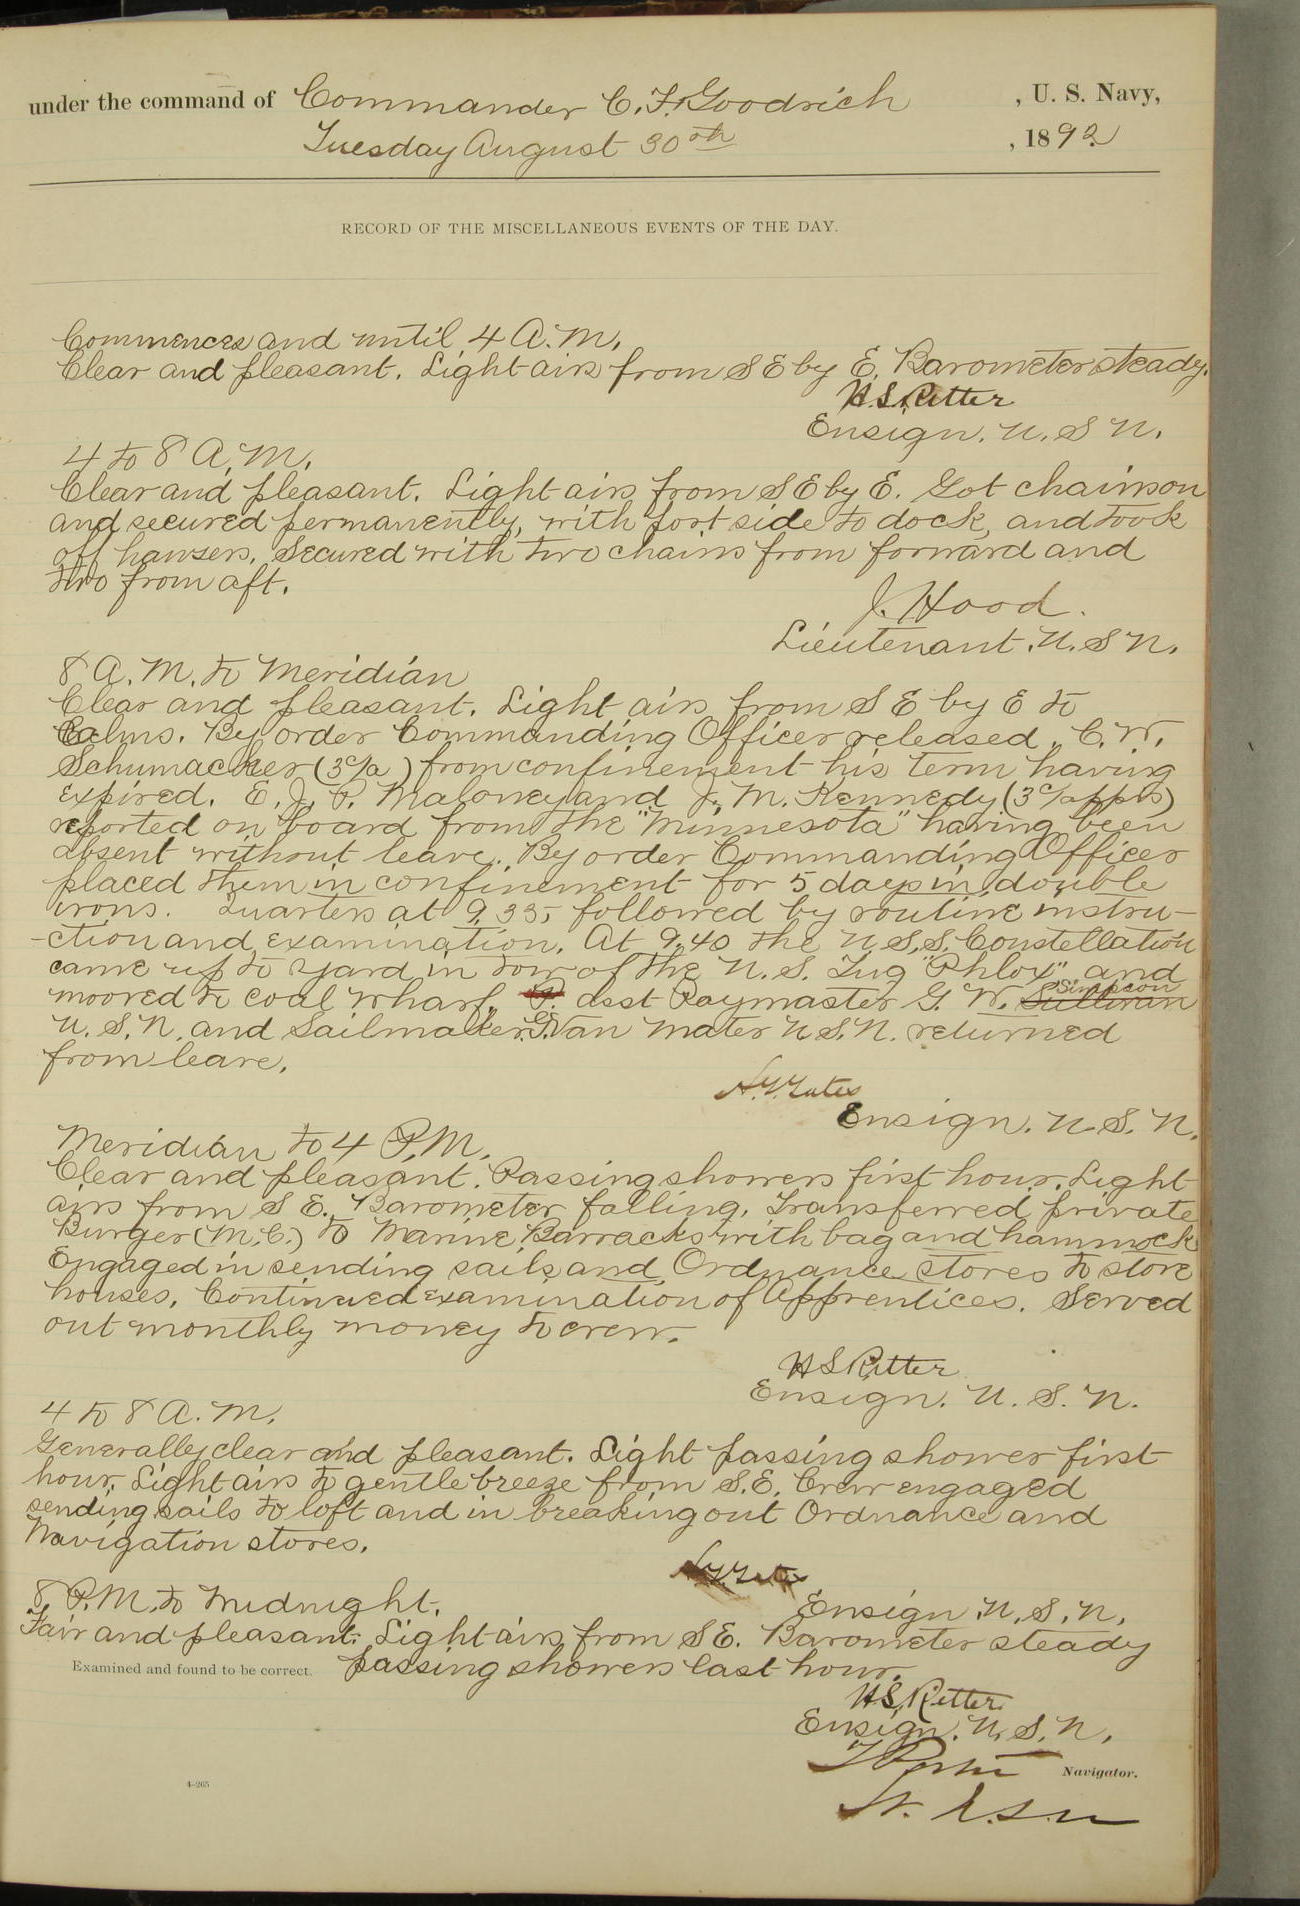 under the command of Commander C. F. Goodrich, U. S. Navy,
Tuesday August 30th, 1892
RECORD OF THE MISCELLANEOUS EVENTS OF THE DAY.
Commences and until 4 A.M.
Clear and pleasant. Light airs from SE by E. Barometer steady.
H.S. Ritter
Ensign. U.S.N.
4 to 8 A.M.
Clear and pleasant. Light airs from SE by E. Got chains on
and secured permanently, with port side to dock, and took
off hausers. Secured with two chains from forward and
two from aft.
J. Hood.
Lieutenant. U.S.N.
8 A.M. to Meridian
Clear and pleasant. Light airs from SE by E to
Calms. By order Commanding Officer released, C. W.
Schumacher (3 c/a) from confinement his term having
expired. E. J. P. Maloney and J. M. Kennedy (3 c/apps)
reported on board from the "Minnesota" having been
absent without leave. By order Commanding Officer
placed them in confinement for 5 days in double
irons. Quarters at 9.35, followed by routine instru-
-ction and examination. At 9.40 the U.S.S. Constellation
came up to Yard in tow of the U.S. Tug "Phlox" and
moored to coal wharf. P. asst Paymaster G. W. Sullivan Simpson
U.S.N. and Sailmaker G. Van Mater U.S.N. returned
from leave.
Ensign. U.S.N.
Meridian to 4 P.M.
Clear and pleasant. Passing showers first hour. Light
airs from S E. Barometer falling. Transferred private
Burger (M.C.) to Marine Barracks with bag and hammock
Engaged in sending sails and Ordnance stores to store
houses. Continued examination of Apprentices. Served
out monthly money to crew.
H S Ritter
Ensign. U.S.N.
4 to 8 A.M.
Generally clear and pleasant. Light passing shower first
hour. Light airs to gentle breeze from S.E. Crew engaged
sending sails to loft and in breaking out Ordnance and
Navigation stores.
Ensign U.S.N.
8 P.M. to Midnight.
Fair and pleasant. Light airs from SE. Barometer steady
passing showers last hour.
Examined and found to be correct.
H.S. Ritter
Ensign. U.S.N.
Navigator.
Lt. U.S.N
4-265